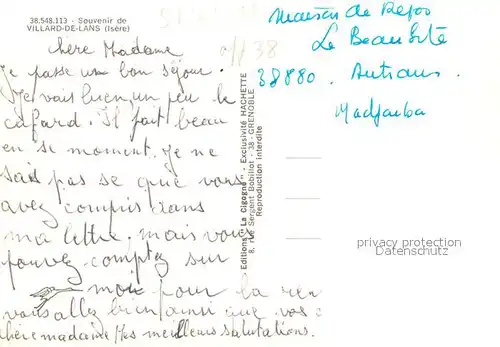 38.548.113 - Souvenir de
VILLARD-DE-LANS (Isère)
chère Madame
Je passe un bon séjour.
Je vais bien, un peu le
cafard. Il fait beau
en se moment. Je ne
sais pas se que vous
avez compris dans
ma lettre, mais vous
pouvez comptez sur
moi pour la
vous allez bien ainsi que vos
chère madame mes meilleurs salutations.
Editions "La Cigogne" - Exclusivité HACHETTE
8, rue Sergent Bobillot - 38 - GRENOBLE
Reproduction interdite
38
Maison de Repos
Le Beau Site
38880. Autrans.
privacy protection
watermark